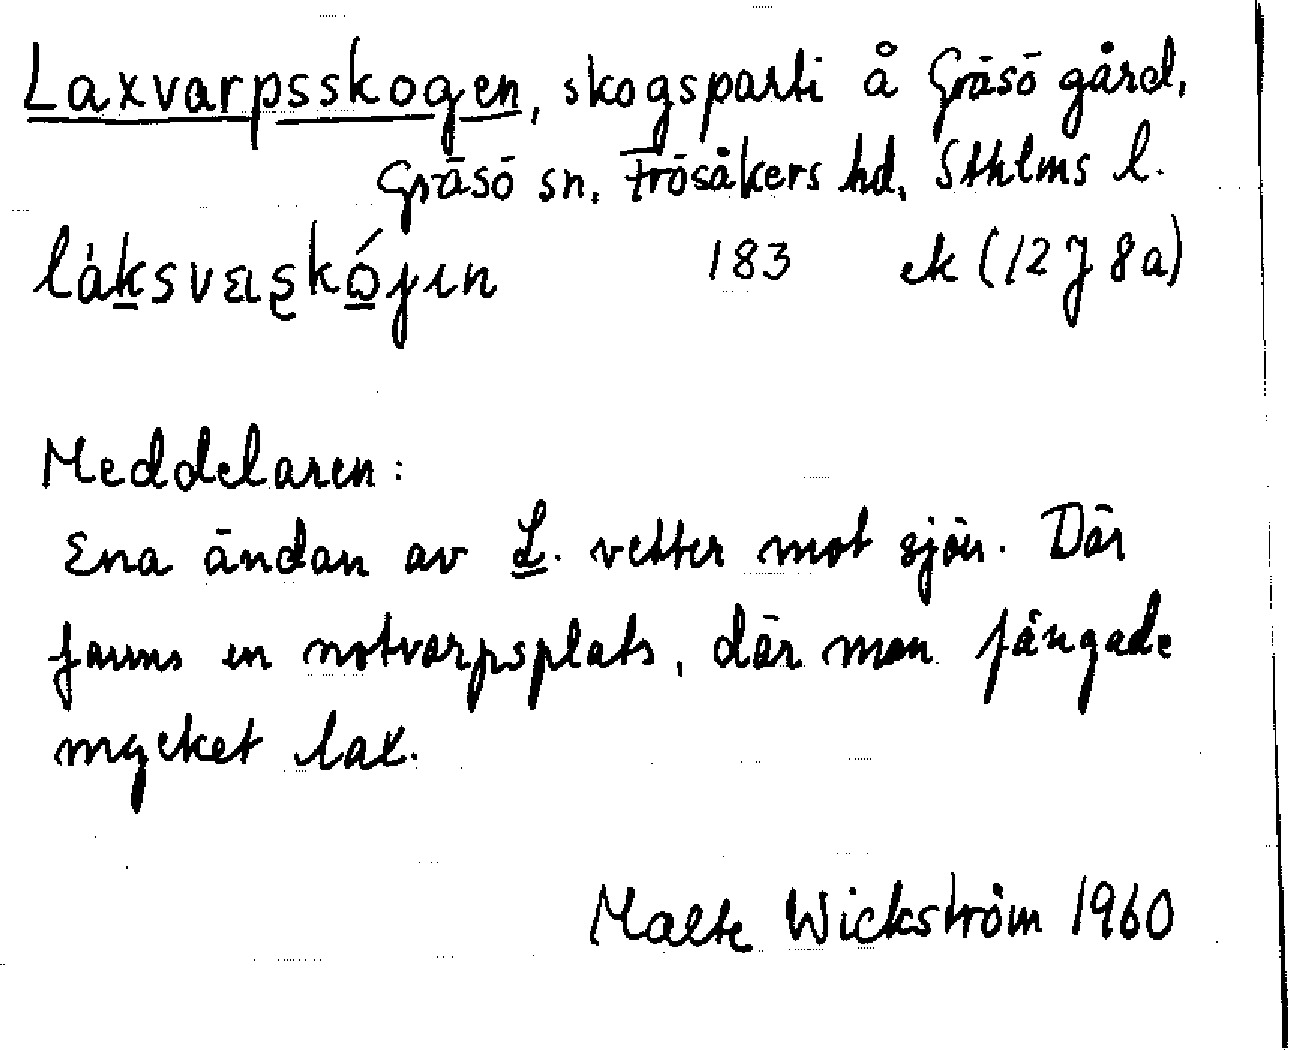 Laxvarpsskogen, skogsparti å Gräsö gård,
Gräsö sn, Frösåkers hd, Sthlms l.
183 ek (12 J 8a)
Meddelaren:
Ena ändan av L. vetter mot sjön. Där
fanns en notvarpsplats, där man fångade
mycket lax.
Malte Wickström 1960